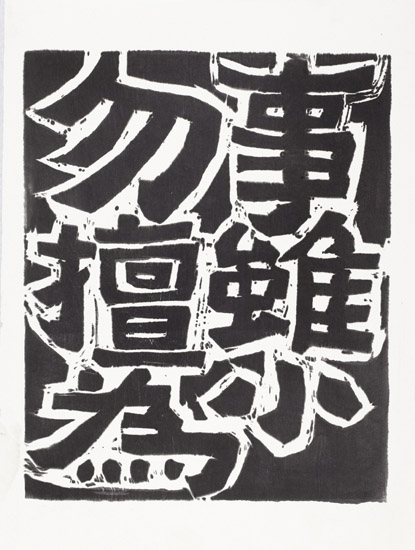 事雖小
勿擅為